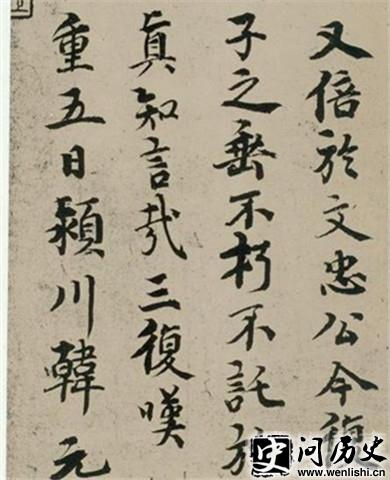 又倍於文忠公今復
子之垂不朽不託於
真知言哉三復嘆
重五日潁川韓元
史问历史
www.wenlishi.cn